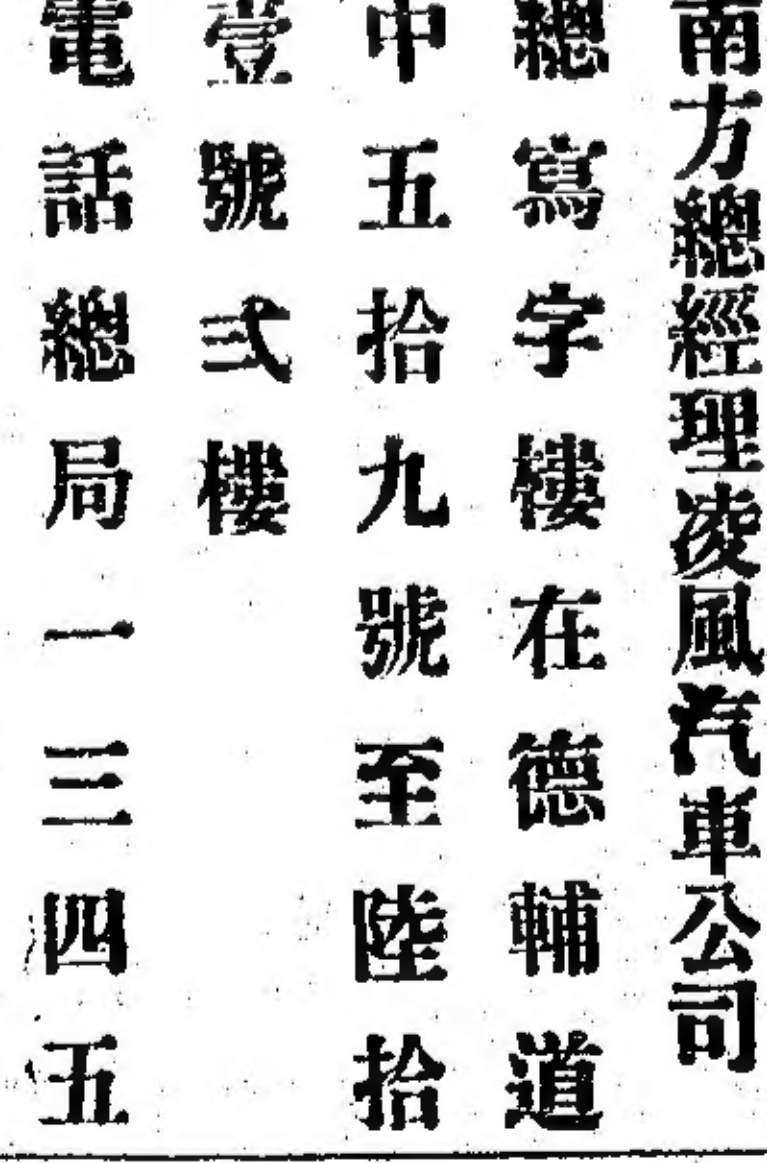 南方總經理凌風汽車公司
總寫字樓在德輔道
中五拾九號至陸拾
壹號弍樓
電話總局一三四五